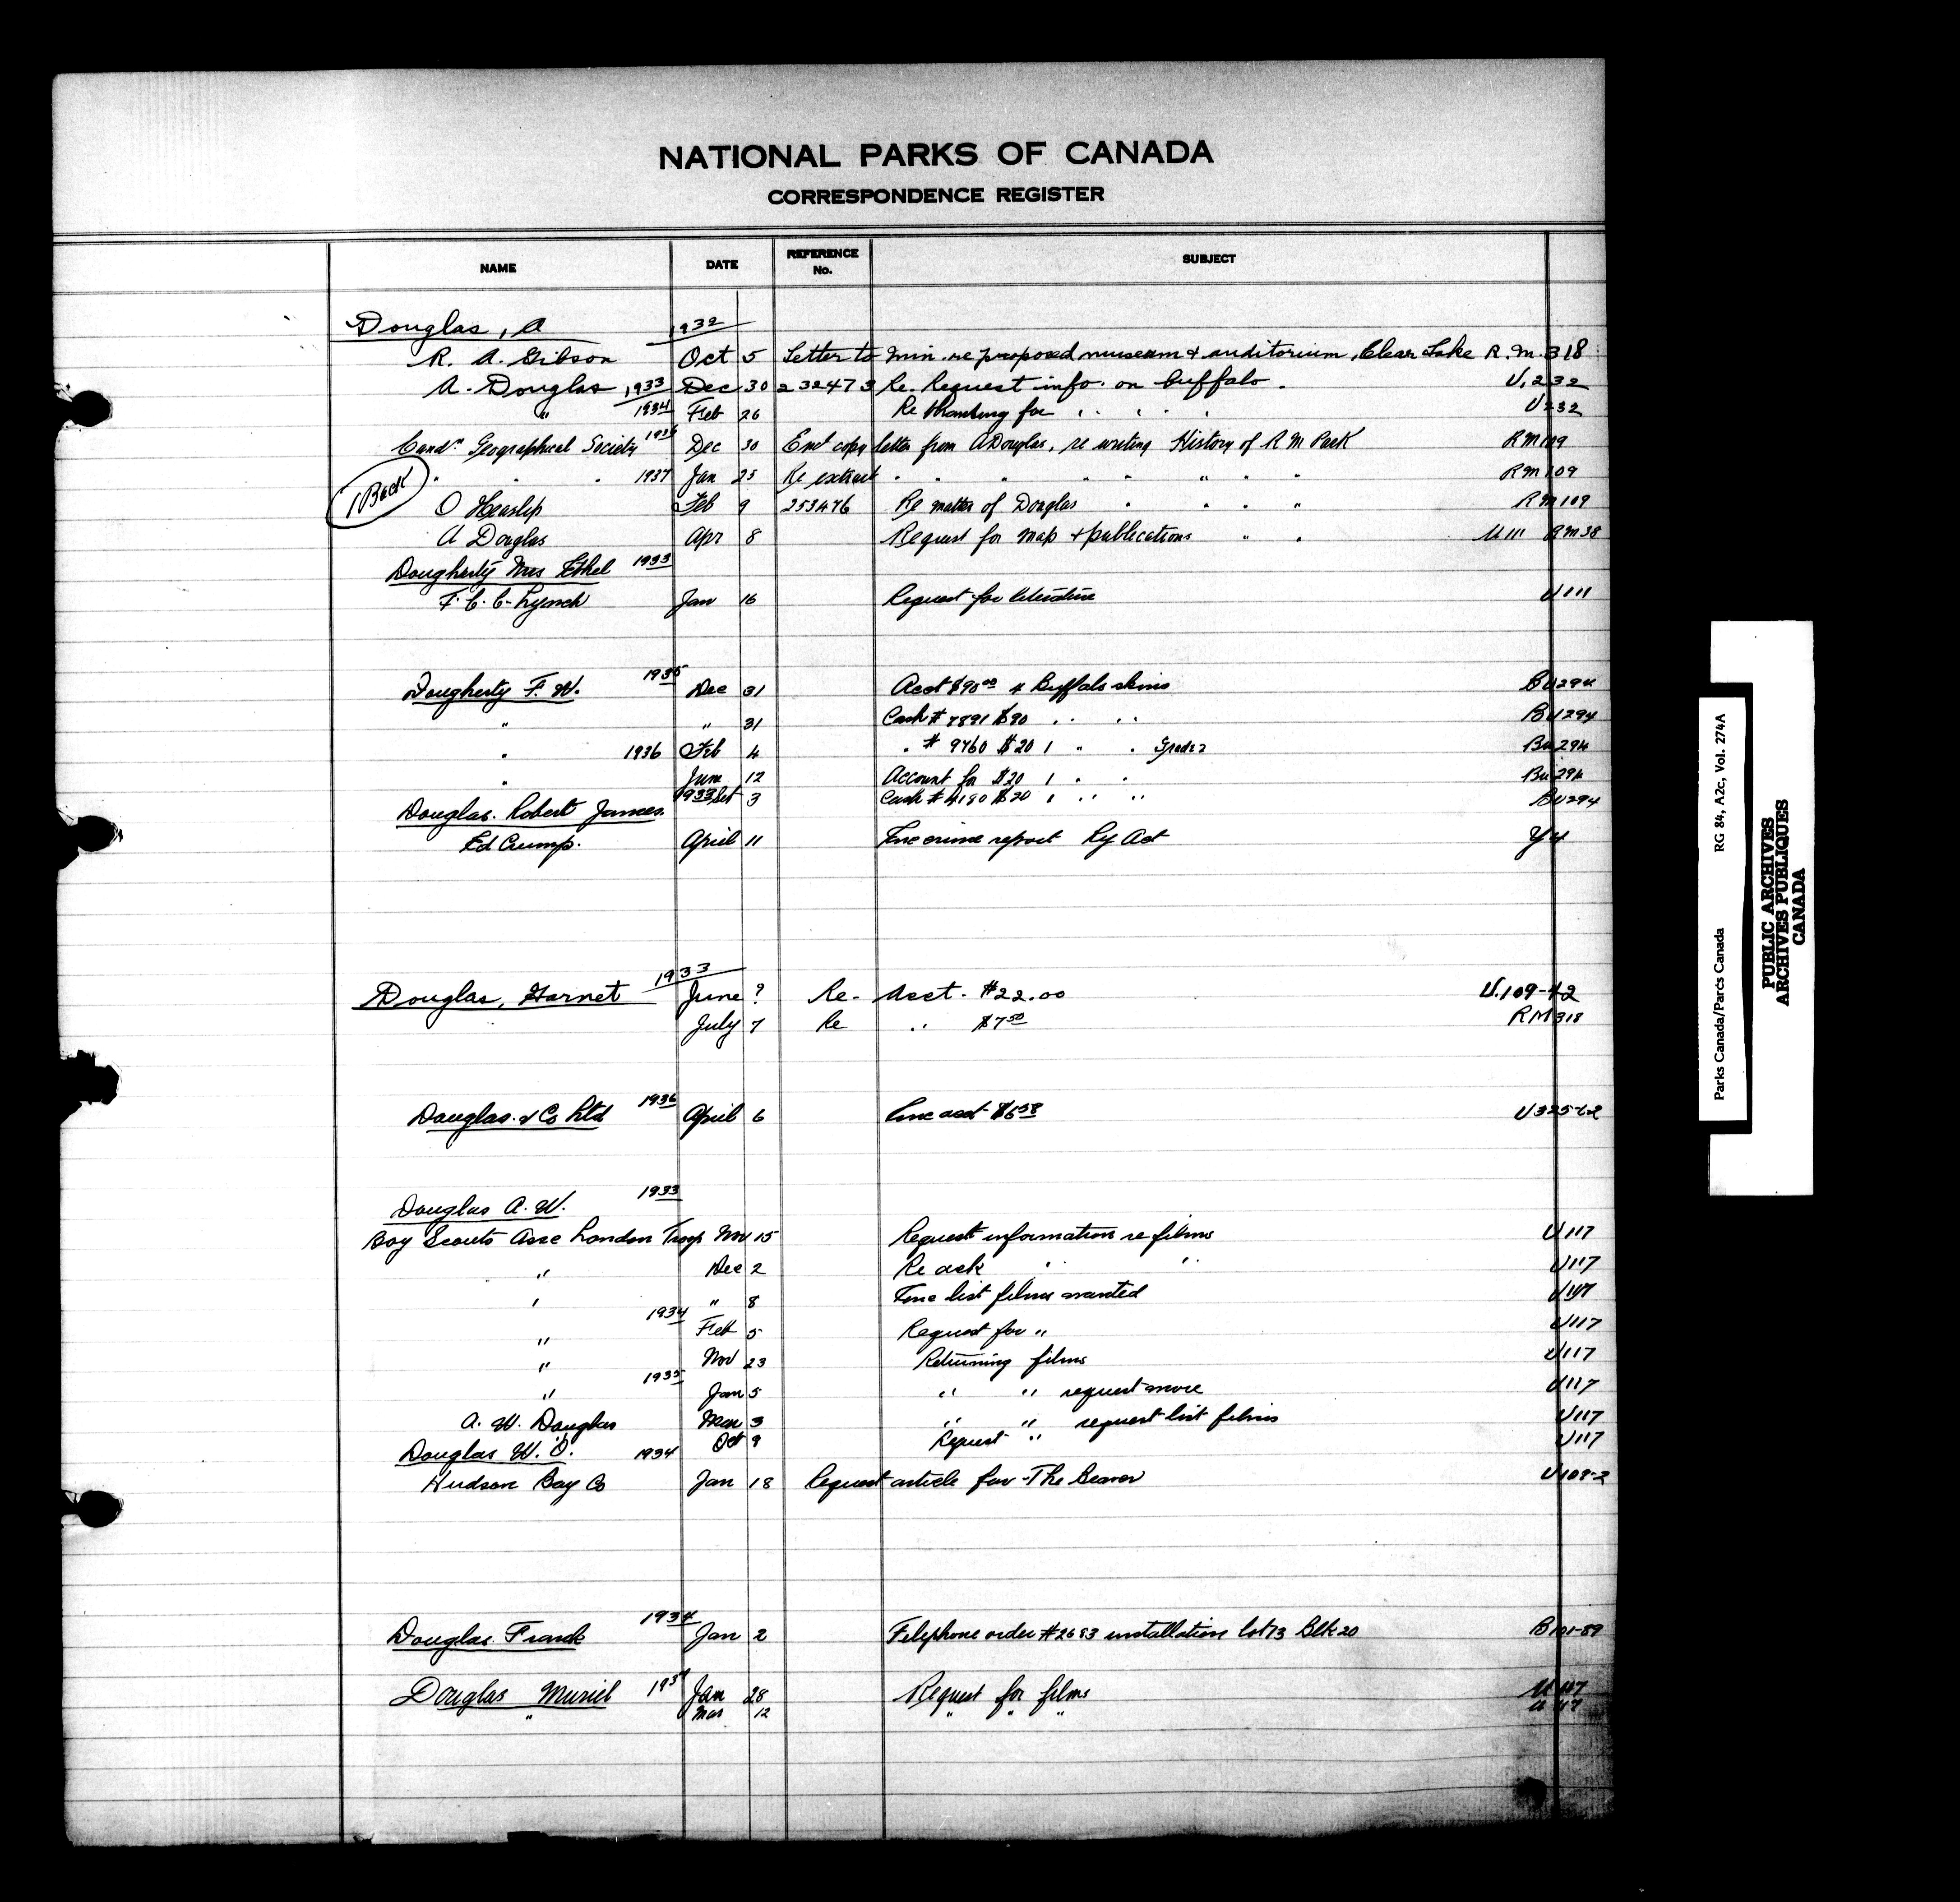 NATIONAL PARKS OF CANADA
CORRESPONDENCE REGISTER
NAME DATE REFERENCE No. SUBJECT
Douglas, A 1932
R. A. Gibson Oct 5 Letter to Min. re proposed museum & auditorium, Clear Lake R.M. 318
A. Douglas 1933 Dec 30 232473 Re. Request info. on buffalo. U.232
" 1934 Feb 26 Re thanking for " " " " U232
Candn Geographical Society Dec 30 Encl copy letter from A Douglas, re writing History of R M Park RM109
" " " 1937 Jan 25 Re extract " " " " " " " RM109
1 Back
O Heaslip Feb 9 253476 Re matter of Douglas " " " " RM109
A Douglas Apr 8 Request for map & publications " " U111 RM38
Dougherty Mrs Ethel 1933
F. C. C. Lynch Jan 16 Request for literature U111
Dougherty F. W. 1935 Dec 31 Acct $90.00 4 Buffalo skins BU294
" " 31 Cash # 7891 $90 " " BU294
" 1936 Feb 4 " # 9760 $20 1 " " Grade 2 Bu294
" June 12 Account for $20 1 " " Bu294
3 Cash # 4180 $20 1 " " BU294
Douglas. Robert James. 1933
Ed Crump. April 11 Enc crime report Ry Act Y4
Douglas, Garnet 1933 June ? Re- Acct. $22.00 U.109-42
July 7 Re " $7.50 RM318
Douglas & Co Ltd 1936 April 6 Enc acct U325-62
Douglas A. W. 1933
Boy Scouts Assc London Troop Nov 15 Request information re films U117
" Dec 2 Re ack " " U117
" " 8 Enc list films wanted U117
" 1934 Feb 5 Request for " U117
" Nov 23 Returning films U117
" 1935 Jan 5 " " request more U117
A. W. Douglas Mar 3 " " request list films U117
Oct 9 Request " U117
Douglas W. O. 1934
Hudson Bay Co Jan 18 Request article for - The Beaver U109-2
Douglas Frank 1934 Jan 2 Telephone order #2683 installation lot 13 Blk 20 B101-89
Douglas Muriel Jan 28 Request for films U117
" Mar 12 " " " U117
Parks Canada/Parcs Canada RG 84, A2c, Vol. 274A
PUBLIC ARCHIVES
ARCHIVES PUBLIQUES
CANADA